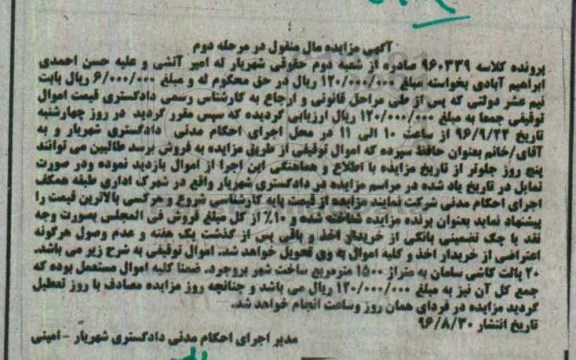 آگهی مزایده مال منقول در مرحله دوم
پرونده کلاسه ۹۶۰۳۳۹ صادره از شعبه دوم حقوقی شهریار له امیر آتشی و علیه حسن احمدی
ابراهیم آبادی بخواسته مبلغ ۱۲۰/۰۰۰/۰۰۰ ریال در حق محکوم له و مبلغ ۶/۰۰۰/۰۰۰ ریال بابت
نیم عشر دولتی که پس از طی مراحل قانونی و ارجاع به کارشناس رسمی دادگستری قیمت اموال
توقیفی جمعا به مبلغ ۱۲۰/۰۰۰/۰۰۰ ریال ارزیابی گردیده که سپس مقرر گردید در روز چهارشنبه
تاریخ ۹۶/۹/۲۲ از ساعت ۱۰ الی ۱۱ در محل اجرای احکام مدنی دادگستری شهریار و به
آقای/خانم بهنوان حافظ سپرده که اموال توقیفی از طریق مزایده به فروش برسد طالبین می توانند
پنج روز جلوتر از تاریخ مزایده با اطلاع و هماهنگی این اجرا از اموال بازدید نموده ودر صورت
تمایل در تاریخ یاد شده در مراسم مزایده در دادگستری شهریار واقع در شهرک اداری طبقه همکف
اجرای احکام مدنی شرکت نمایند مزایده از قیمت پایه کارشناسی شروع و هرکسی بالاترین قیمت را
پیشنهاد نماید بعنوان برنده مزایده شناخته شده و ۱۰٪ از کل مبلغ فروش فی المجلس بصورت وجه
نقد یا چک تضمینی بانکی از خریدار اخذ و باقی پس از گذشت یک هفته و عدم وصول هرگونه
اعتراضی از خریدار اخذ و کلیه اموال به وی تحویل خواهد شد. اموال توقیفی به شرح زیر می باشد.
۲۰ پالت کاشی سامان به متراژ ۱۵۰۰ مترمربع ساخت شهر بروجرد. ضمنا کلیه اموال مستعمل بوده که
جمع کل آن نیز به مبلغ ۱۲۰/۰۰۰/۰۰۰ ریال می باشد و چنانچه روز مزایده مصادف با روز تعطیل
گردید مزایده در فردای همان روز وساعت انجام خواهد شد.
تاریخ انتشار ۹۶/۸/۳۰
مدیر اجرای احکام مدنی دادگستری شهریار -امینی